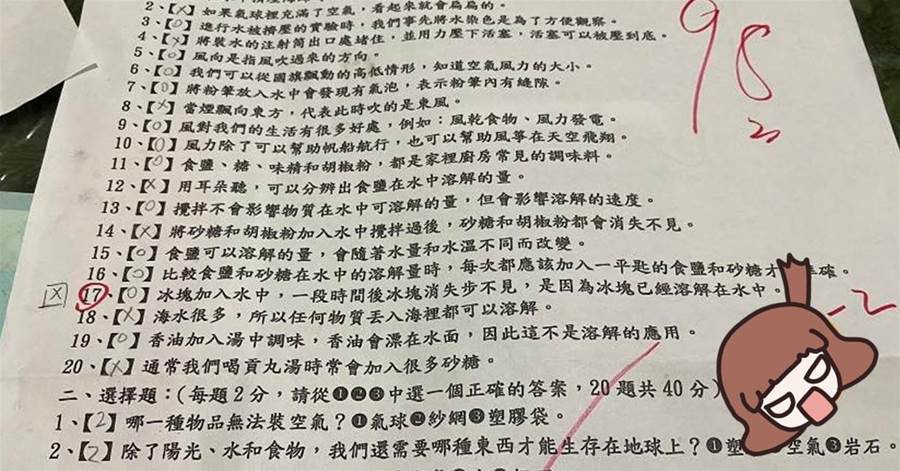 2、【X】如果氣球裡充滿了空氣，看起來就會扁扁的。
3、【O】進行水被擠壓的實驗時，我們事先將水染色是為了方便觀察。
4、【X】將裝水的注射筒出口處堵住，並用力壓下活塞，活塞可以被壓到底。
5、【O】風向是指風吹過來的方向。
6、【O】我們可以從國旗飄動的高低情形，知道空氣風力的大小。
7、【O】將粉筆放入水中會發現有氣泡，表示粉筆內有縫隙。
8、【X】當煙飄向東方，代表此時吹的是東風。
9、【O】風對我們的生活有很多好處，例如：風乾食物、風力發電。
10、【O】風力除了可以幫助帆船航行，也可以幫助風箏在天空飛翔。
11、【O】食鹽、糖、味精和胡椒粉，都是家裡廚房常見的調味料。
12、【X】用耳朵聽，可以分辨出食鹽在水中溶解的量。
13、【O】攪拌不會影響物質在水中可溶解的量，但會影響溶解的速度。
14、【X】將砂糖和胡椒粉加入水中攪拌過後，砂糖和胡椒粉都會消失不見。
15、【O】食鹽可以溶解的量，會隨著水量和水溫不同而改變。
16、【O】比較食鹽和砂糖在水中的溶解量時，每次都應該加入一平匙的食鹽和砂糖才 確。
X 17、【O】冰塊加入水中，一段時間後冰塊消失步不見，是因為冰塊已經溶解在水中。 -2
18、【X】海水很多，所以任何物質丟入海裡都可以溶解。
19、【O】香油加入湯中調味，香油會漂在水面，因此這不是溶解的應用。
20、【X】通常我們喝貢丸湯時常會加入很多砂糖。
二、選擇題：(每題2分，請從❶❷❸中選一個正確的答案，20題共40分)
1、【2】哪一種物品無法裝空氣？❶氣球❷紗網❸塑膠袋。
2、【2】除了陽光、水和食物，我們還需要哪種東西才能生存在地球上？❶塑 空氣❸岩石。
98